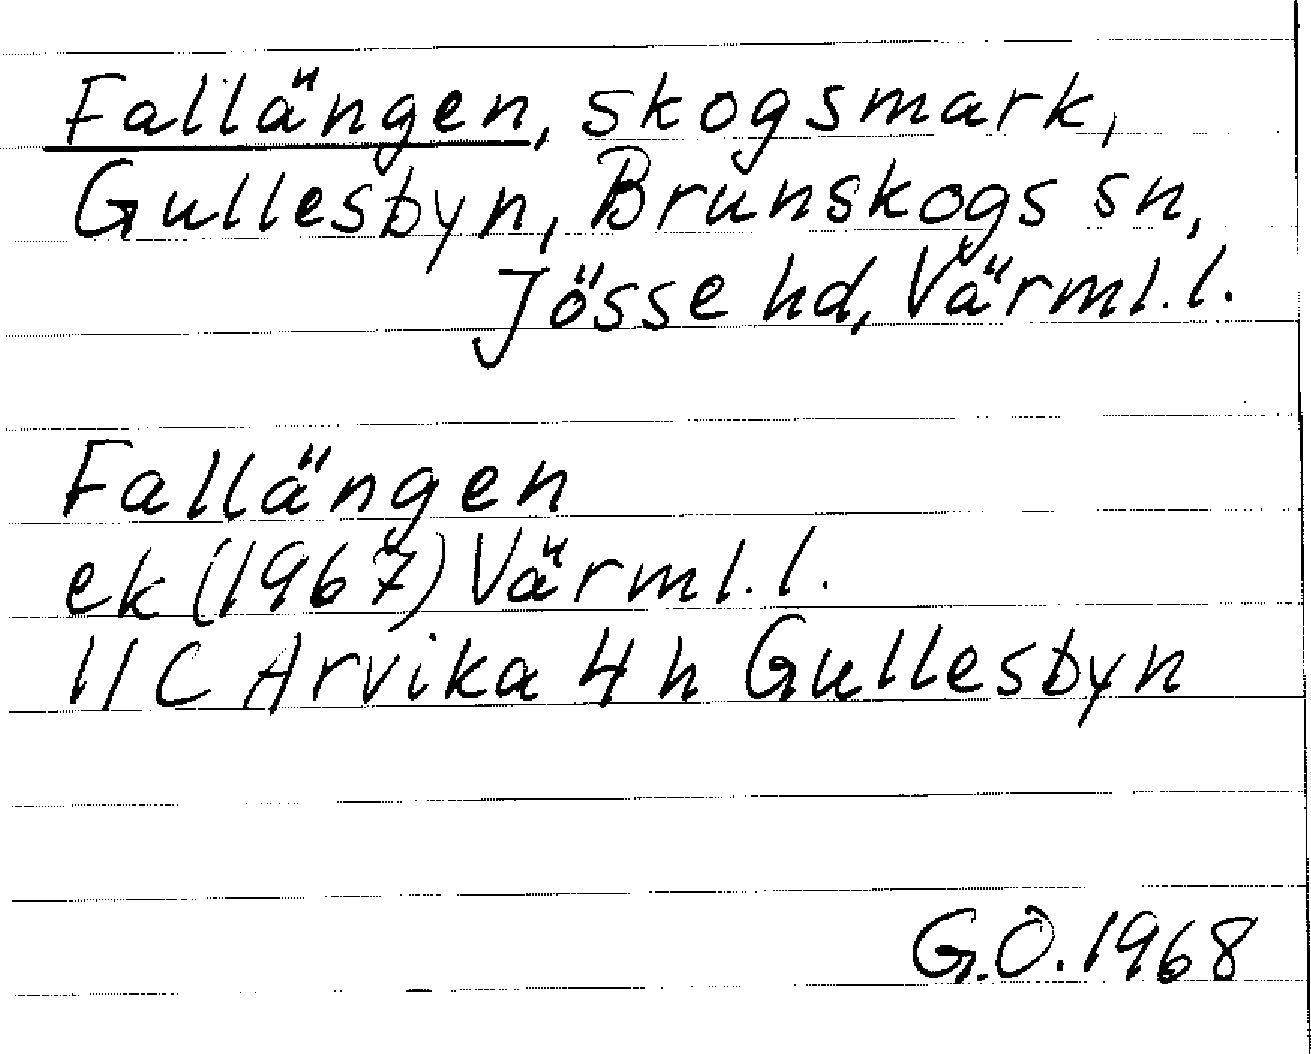 Fallängen, skogsmark,
Gullesbyn, Brunskogs sn,
Jösse hd, Värml. l.
Fallängen
ek (1967) Värml. l.
11 C Arvika 4 h Gullesbyn
G.O. 1968